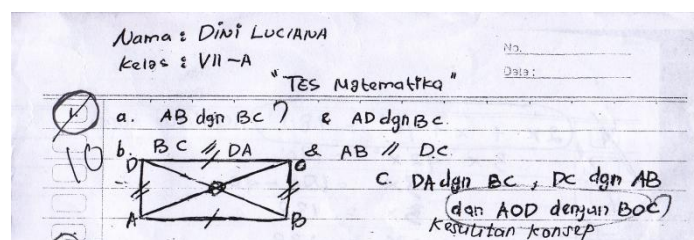 Nama : DINI LUCIANA
Kelas : VII-A
No.
Date:
"TES Matematika"
1 a. AB dgn BC ? & AD dgn BC.
10 b. BC // DA & AB // DC.
D
A B
C. DA dgn BC , DC dgn AB
(dan AOD dengan BOC)
Kesulitan Konsep